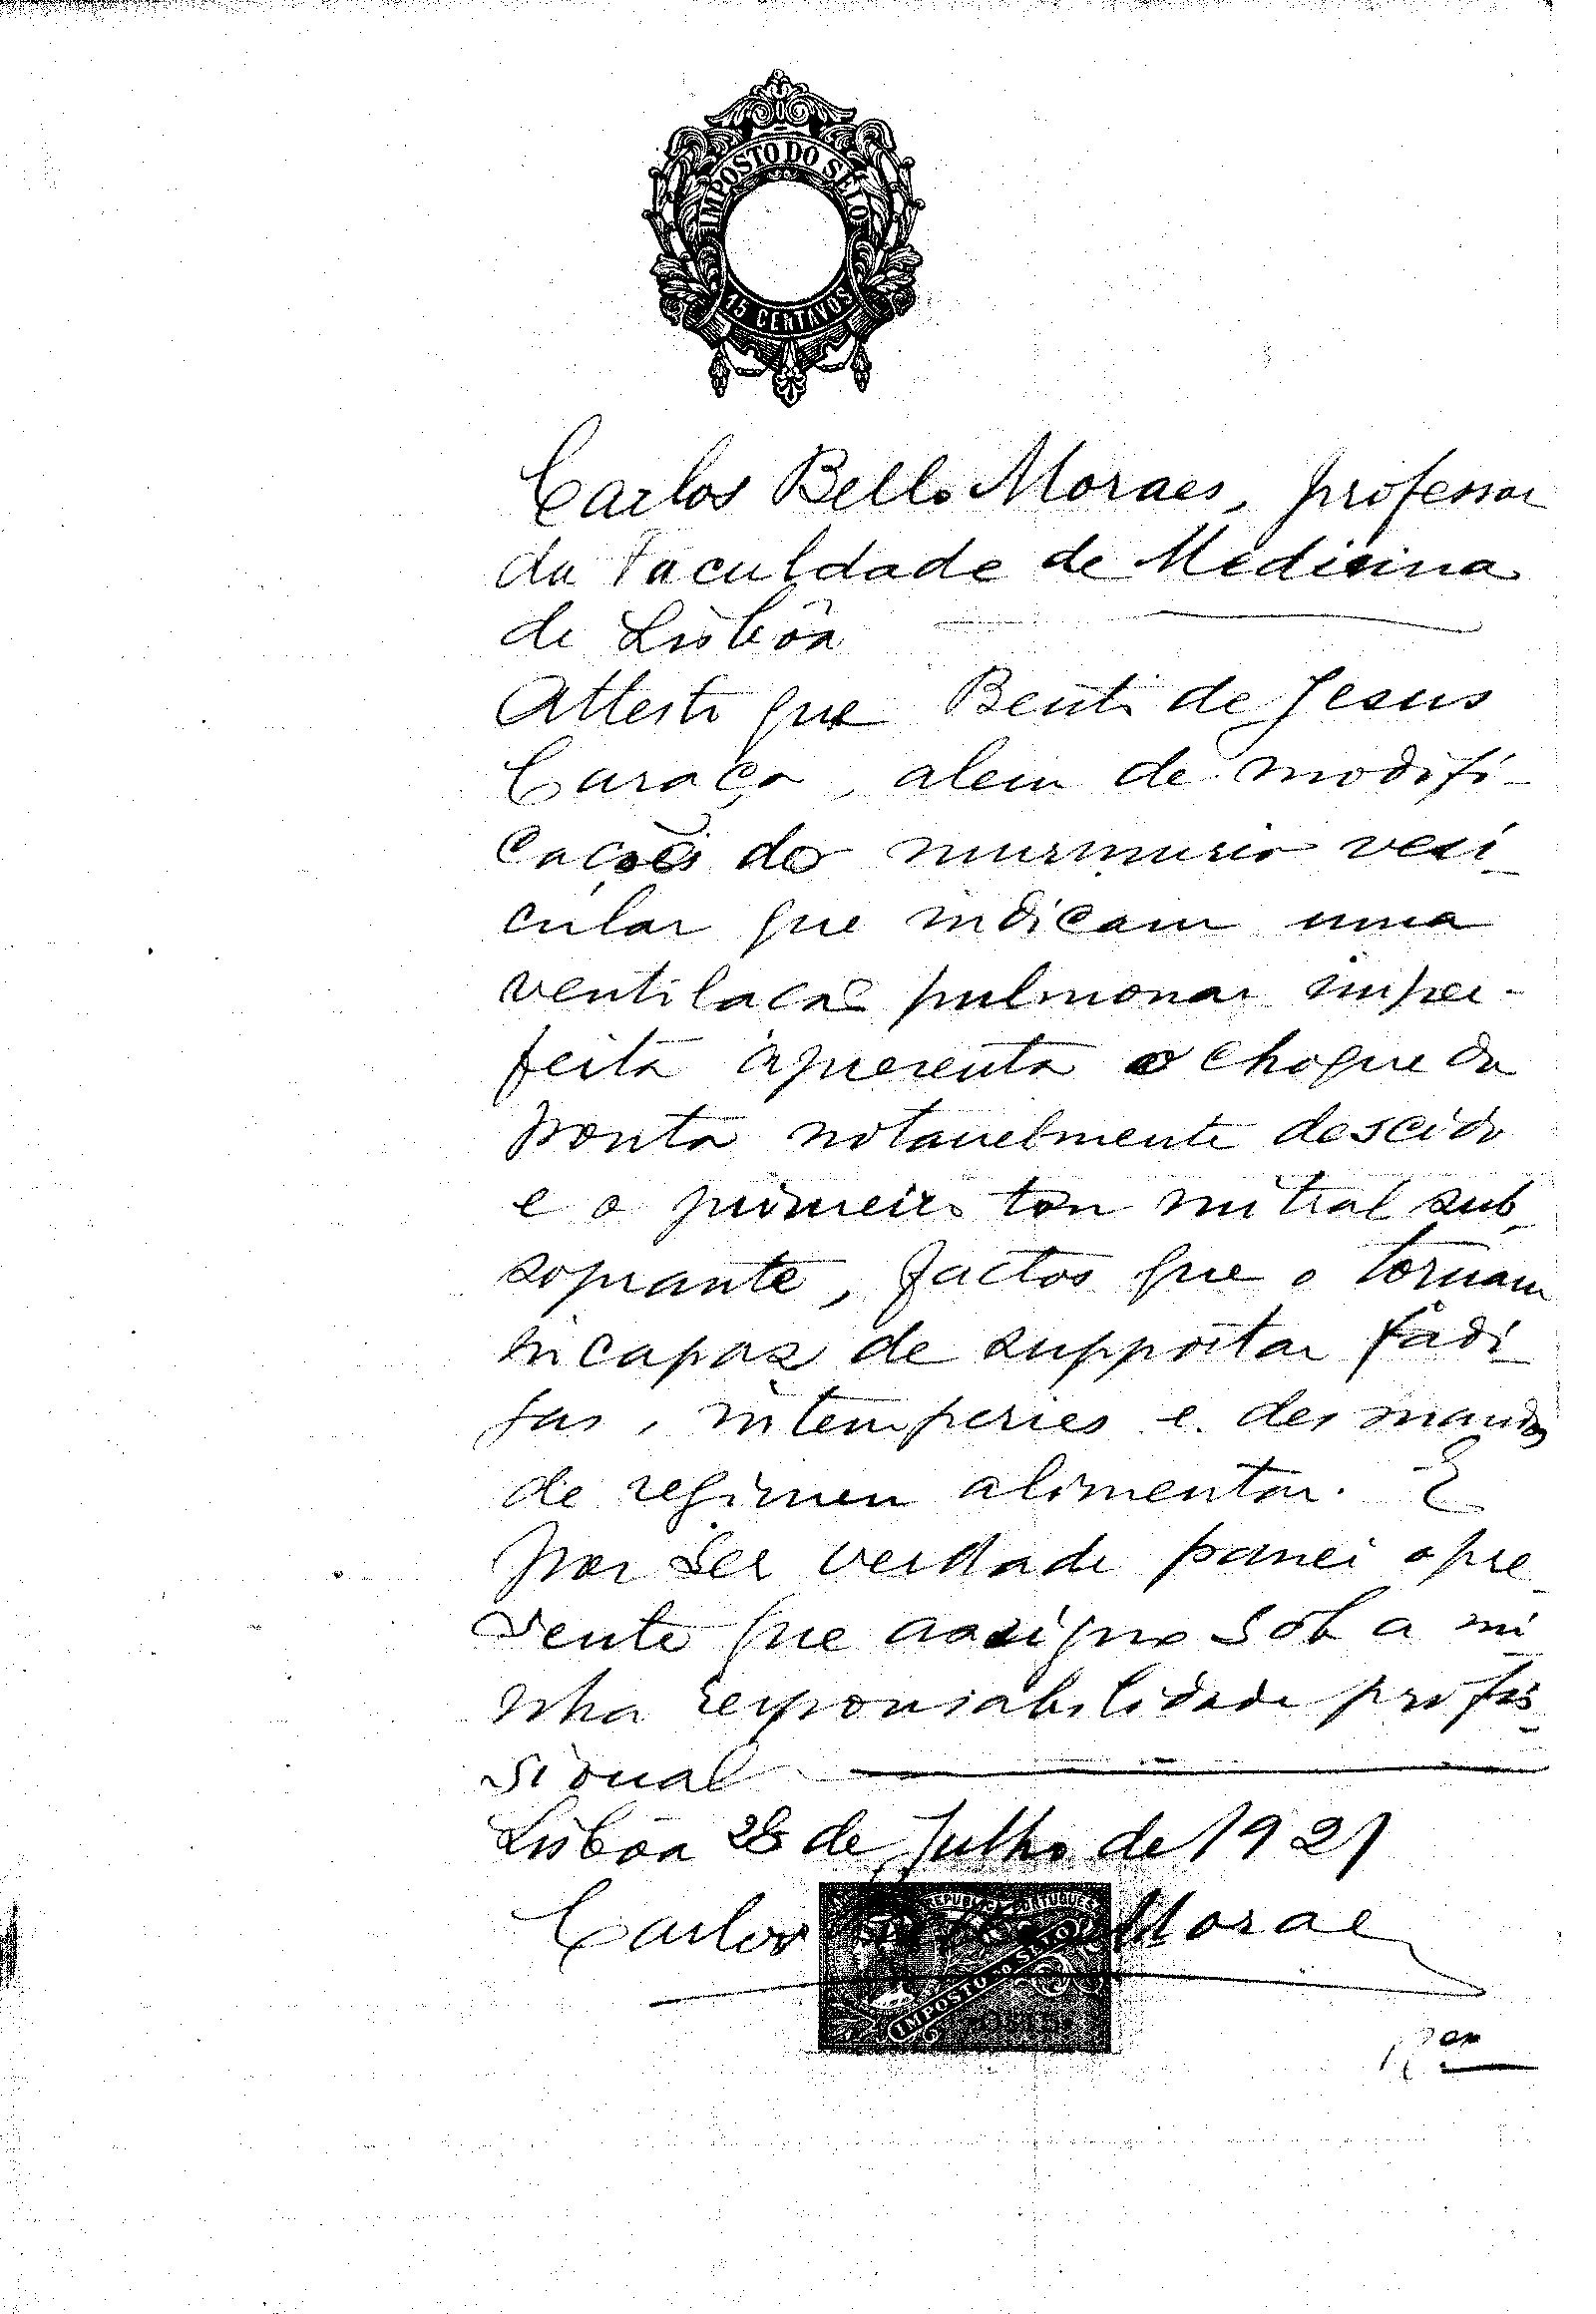 IMPOSTO DO SELO
15 CENTAVOS
Carlos Bello Moraes, professor
da Faculdade de Medicina
de Lisbôa
Attesto que Bento de Jesus
Caraça, alem de modifi-
cações do murmurio vesi-
cular que indicam uma
ventilacão pulmonar imper-
feita apresenta o choque da
ponta notavelmente descido
e o primeiro tom mitral sub-
soprante, factos que o tornam
incapaz de supportar fadi-
gas, intemperies e desmandos
de regimen alimentar. E
por ser verdade passei o pre-
sente que assigno sob a mi-
nha responsabilidade profis-
sional
Lisbôa 28 de Julho de 1921
REPUBLICA PORTUGUESA
Carlos Moraes
IMPOSTO DO SELO